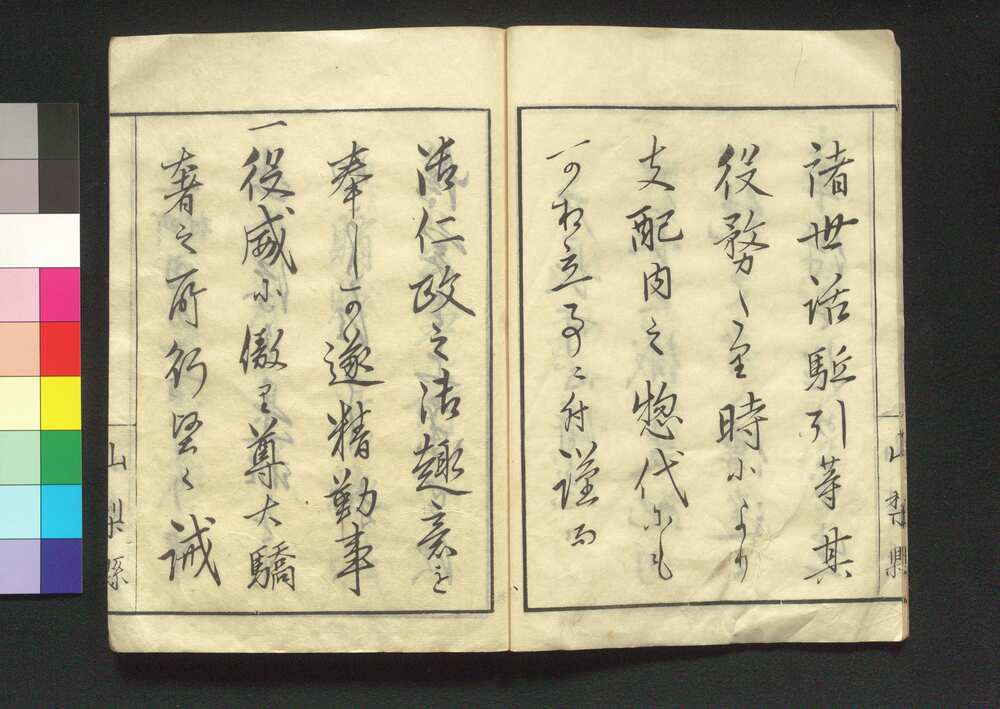 山梨縣
諸世話駈引等其
役務時により
支配内之惣代にも
可相立事ニ付謹而
御仁政之御趣意を
奉し可遂精勤事
一役威に傲り尊大驕
奢之所行堅く誡
山梨縣